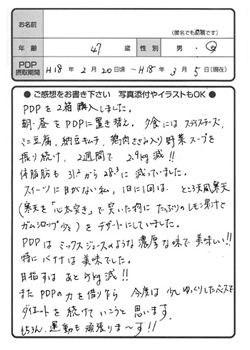 お名前
(匿名でも結構です)
年齢 47歳 性別 男・女
PDP摂取期間 H18年2月20日頃〜H18年3月5日(現在)
●ご感想をお書き下さい 写真添付やイラストもOK●
PDPを2箱購入しました。
朝・昼をPDPに置き換え、夕食には
ミニ豆腐、納豆、鶏肉ささみ入り野菜スープを
摂り続け、2週間で2.9kg減!!
体脂肪も31%から28%に減っていました。
スイーツに目がない私。1日に1回は、ところ天風寒天
(寒天を「心太突き」で突いた物に たっぷりのレモン果汁で
ガムシロップ) をデザートにしていました。
PDPはミックスジュースのような濃厚な味で美味しい!!
特にバナナは美味でした。
目指すはあと 減!!
またPDPの力を借りながら 今度は少しゆっくりしたペースで
ダイエットを続けていこうと思います。
もちろん、運動も頑張りま〜す!!